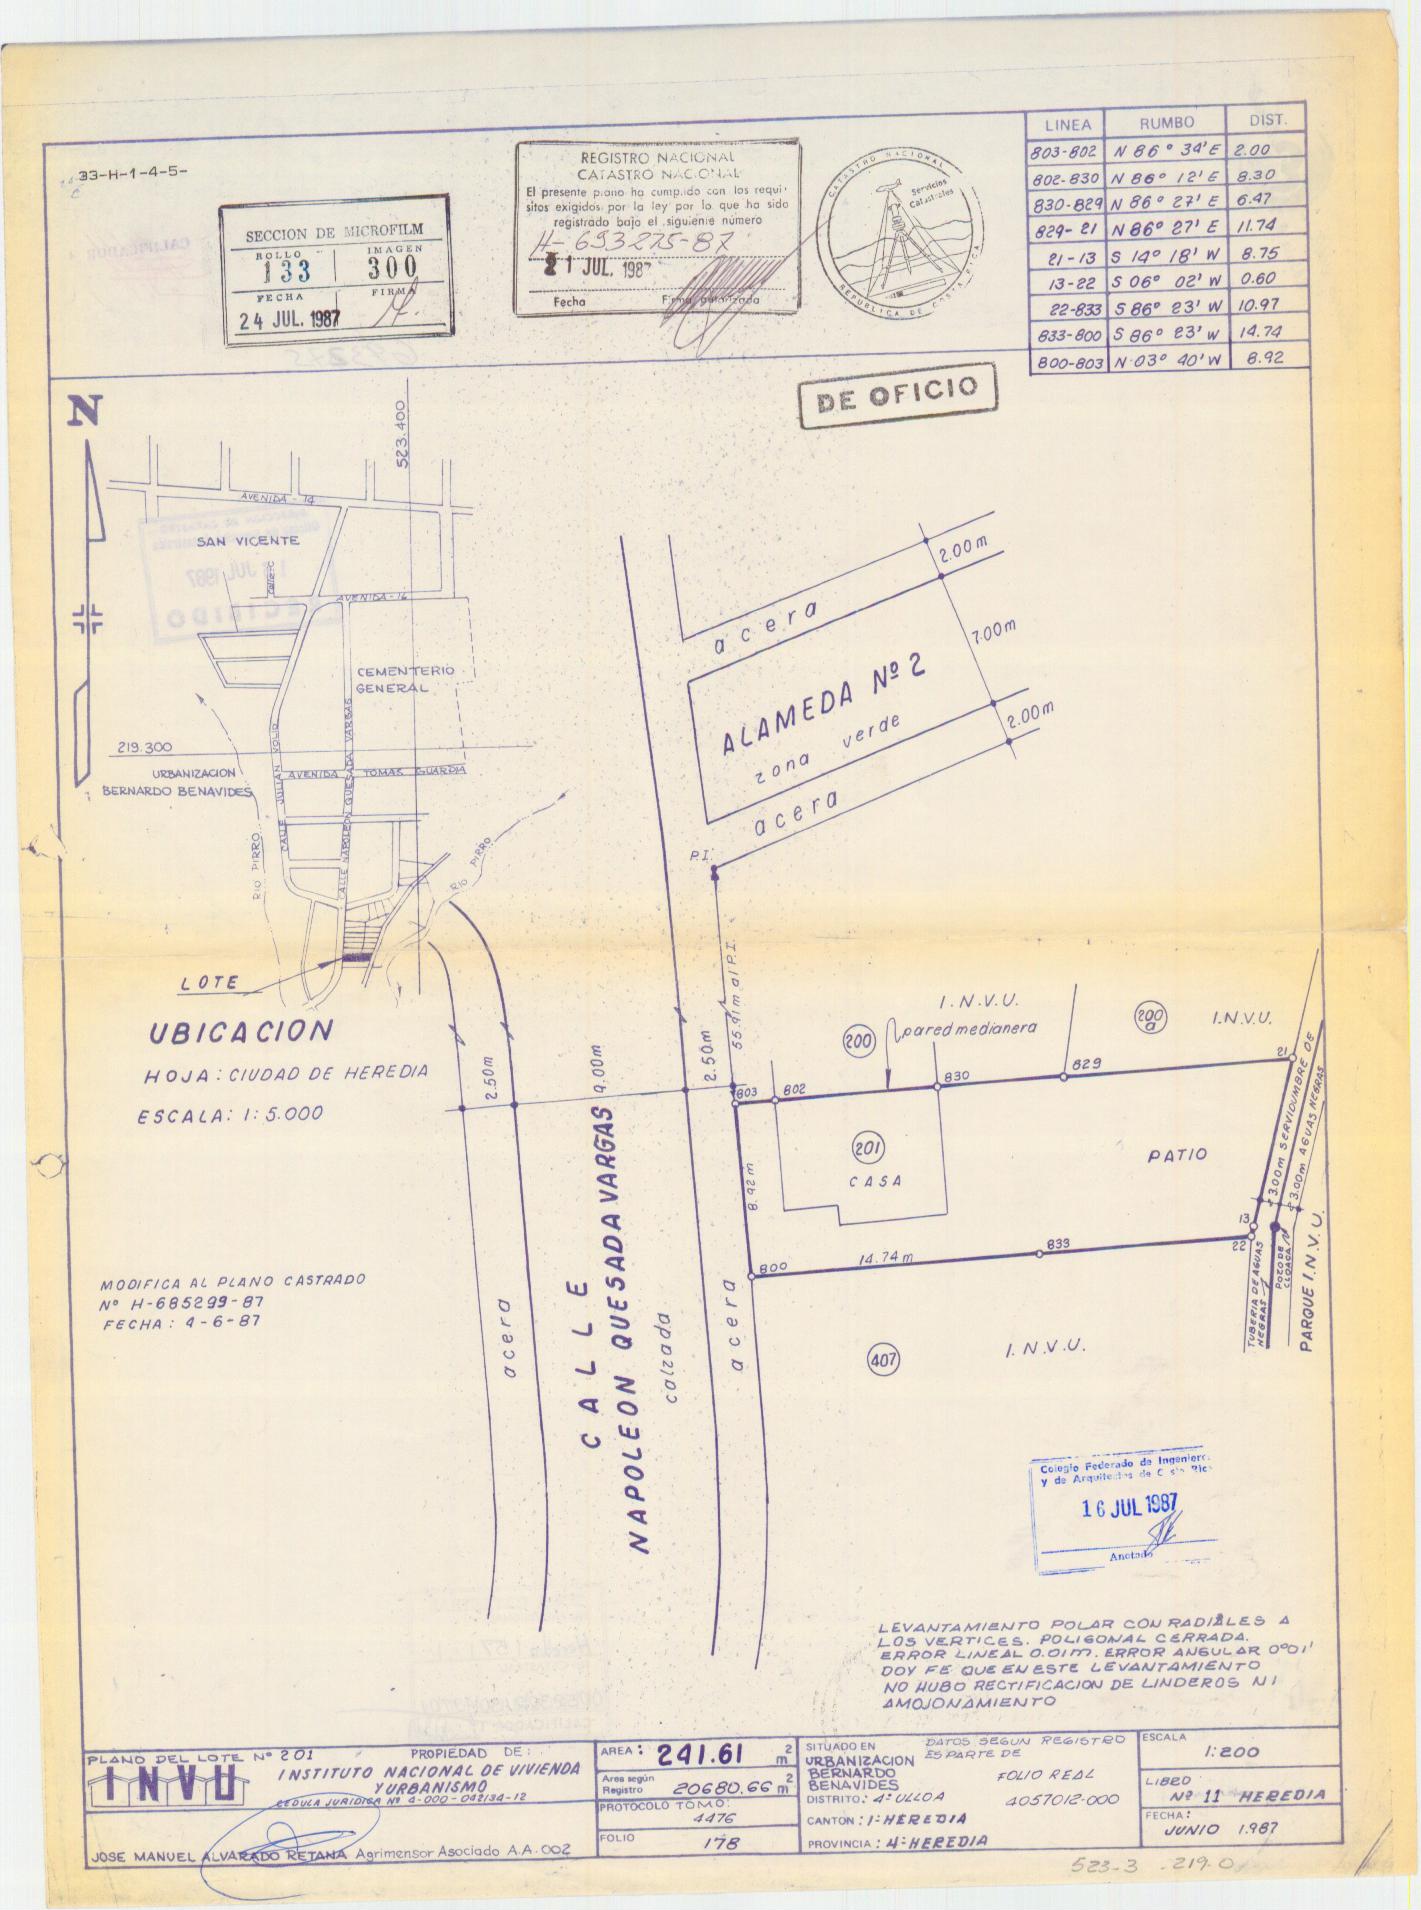 33-H-1-4-5-
SECCION DE MICROFILM
ROLLO
133
IMAGEN
300
FECHA
24 JUL. 1987
FIRMA
REGISTRO NACIONAL
CATASTRO NACIONAL
El presente plano ha cumplido con los requi-
sitos exigidos por la ley por lo que ha sido
registrado bajo el siguiente número
H-693275-87
21 JUL. 1987
Fecha
Firma autorizada
CATASTRO NACIONAL
Servicios
Catastrales
REPUBLICA DE COSTA RICA
LINEA RUMBO DIST.
803-802 N 86° 34' E 2.00
802-830 N 86° 12' E 8.30
830-829 N 86° 27' E 6.47
829-21 N 86° 27' E 11.74
21-13 S 14° 18' W 8.75
13-22 S 06° 02' W 0.60
22-833 S 86° 23' W 10.97
833-800 S 86° 23' W 14.74
800-803 N 03° 40' W 8.92
DE OFICIO
N
523.400
AVENIDA - 14
SAN VICENTE
CALLE-C
AVENIDA-16
CEMENTERIO
GENERAL
219.300
URBANIZACION
BERNARDO BENAVIDES
CALLE JULIAN VOLIO
CALLE NAPOLEON QUESADA VARGAS
AVENIDA TOMAS GUARDIA
RIO PIRRO
RIO PIRRO
LOTE
UBICACION
HOJA: CIUDAD DE HEREDIA
ESCALA: 1: 5.000
acera
2.00m
7.00m
ALAMEDA Nº 2
zona verde
2.00m
acera
P.I.
55.91m al P.I.
2.50m
9.00m
2.50m
I.N.V.U.
200
pared medianera
200
a
I.N.V.U.
803
802
830
829
21
201
CASA
PATIO
8.92m
800
14.74 m
833
13
22
3.00m SERVIDUMBRE DE
3.00m AGUAS NEGRAS
TUBERIA DE AGUAS
NEGRAS
POZO DE
CLOACA
PARQUE I.N.V.U.
407
I.N.V.U.
acera
CALLE
NAPOLEON QUESADA VARGAS
calzada
acera
MODIFICA AL PLANO CASTRADO
Nº H-685299-87
FECHA: 4-6-87
Colegio Federado de Ingenieros
y de Arquitectos de Costa Rica
16 JUL 1987
Anotado
LEVANTAMIENTO POLAR CON RADIALES A
LOS VERTICES. POLIGONAL CERRADA.
ERROR LINEAL 0.01m. ERROR ANGULAR 0°01'
DOY FE QUE EN ESTE LEVANTAMIENTO
NO HUBO RECTIFICACION DE LINDEROS NI
AMOJONAMIENTO
PLANO DEL LOTE Nº 201
INVU
PROPIEDAD DE:
INSTITUTO NACIONAL DE VIVIENDA
Y URBANISMO
CEDULA JURIDICA Nº 4-000-042134-12
JOSE MANUEL ALVARADO RETANA Agrimensor Asociado A.A. 002
AREA: 241.61 m2
Area según
Registro 20680.66 m2
PROTOCOLO TOMO:
4476
FOLIO 178
SITUADO EN
URBANIZACION
BERNARDO
BENAVIDES
DISTRITO: 4º ULLOA
CANTON: 1º HEREDIA
PROVINCIA: 4º HEREDIA
DATOS SEGUN REGISTRO
ES PARTE DE
FOLIO REAL
4057012-000
ESCALA
1:200
LIBRO
Nº 11 HEREDIA
FECHA:
JUNIO 1.987
523-3 219.0